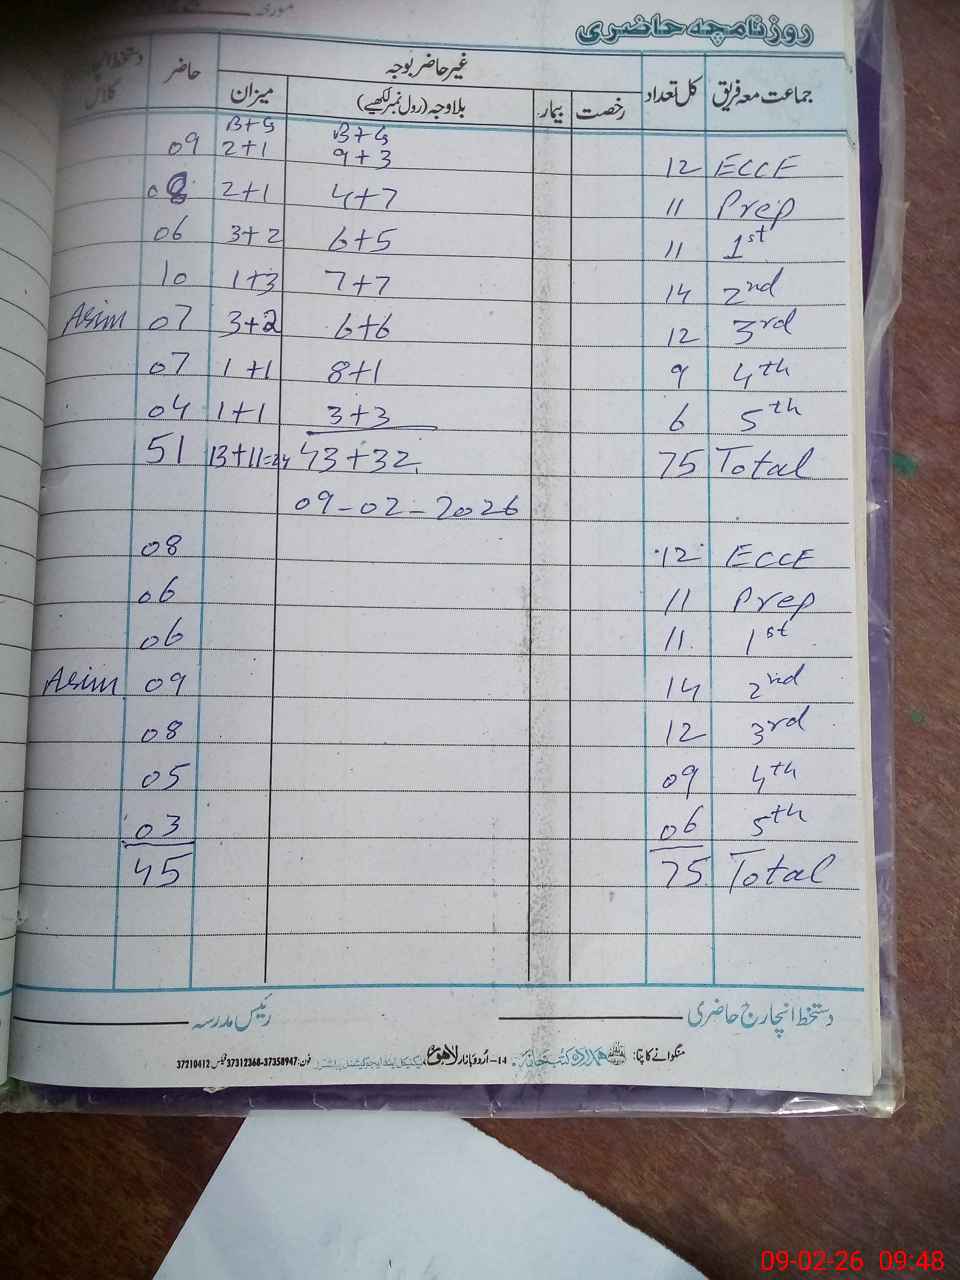 روزنامچہ حاضری
جماعت معہ فریق کل تعداد غیر حاضر بوجہ حاضر
رخصت بیمار بلاوجہ (رول نمبر لکھیے) میزان
B+G B+G
09 2+1 9+3 12 ECCE
08 2+1 4+7 11 Prep
06 3+2 6+5 11 1st
10 1+3 7+7 14 2nd
Asim 07 3+2 6+6 12 3rd
07 1+1 8+1 9 4th
04 1+1 3+3 6 5th
51 13+11=24 43+32 75 Total
09-02-2026
08 12 ECCE
06 11 Prep
06 11 1st
Asim 09 14 2nd
08 12 3rd
05 09 4th
03 06 5th
45 75 Total
دستخط انچارج حاضری رئیس مدرسہ
منگوانے کا پتا: ہمدرد کتب خانہ 14-اُردو بازار لاہور فون: 37312368-37358947 فیکس 37210412
09-02-26 09:48